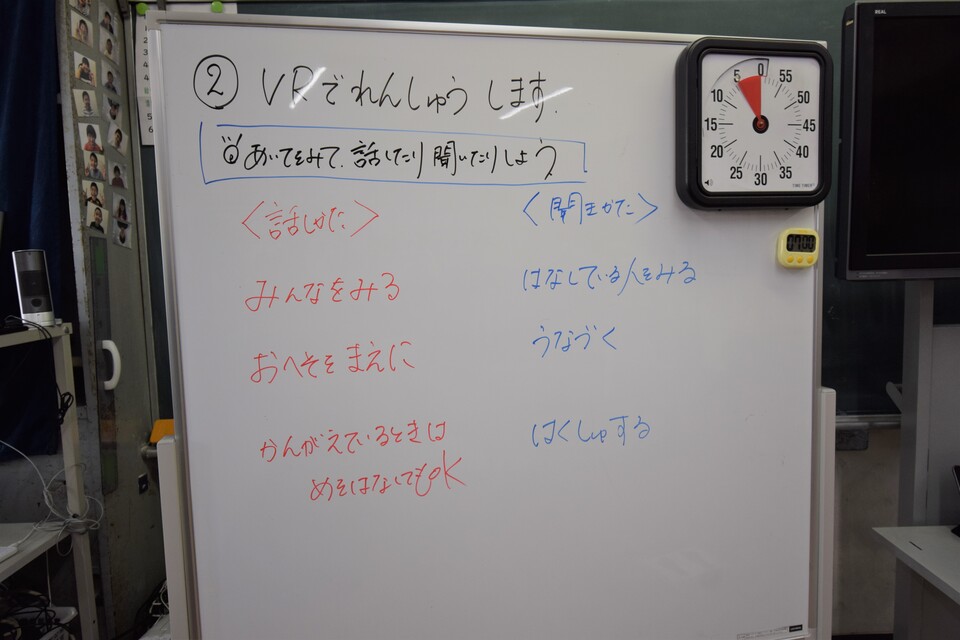 ② VRでれんしゅうします。
あいてをみて、話したり聞いたりしよう
〈話しかた〉
みんなをみる
おへそをまえに
かんがえているときは
めをはなしてもOK
〈聞きかた〉
はなしている人をみる
うなづく
はくしゅする
REAL
0
55
50
45
40
35
30
25
20
15
10
5
TIME TIMER